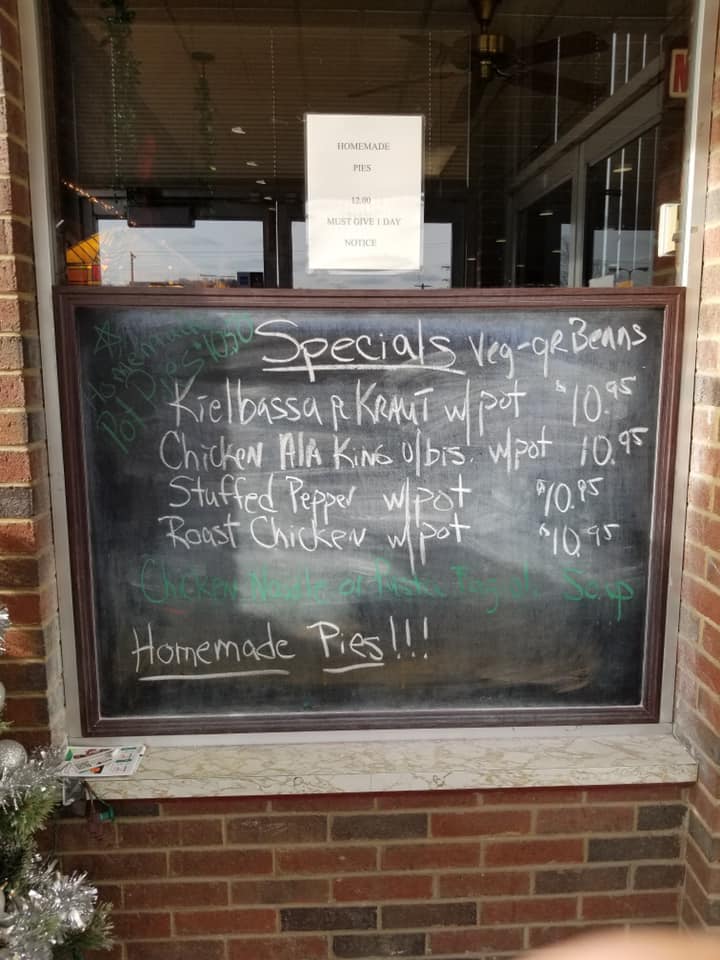 HOMEMADE
PIES
12.00
MUST GIVE 1 DAY
NOTICE
Homemade
Pot Pies 10.50
Specials Veg-gR Beans
Kielbassa & KRAUT w/pot $10.95
Chicken Ala King o/bis. w/pot 10.95
Stuffed Pepper w/pot $10.95
Roast Chicken w/pot $10.95
Chicken Noodle or Pasta Fagioli Soup
Homemade Pies!!!
N